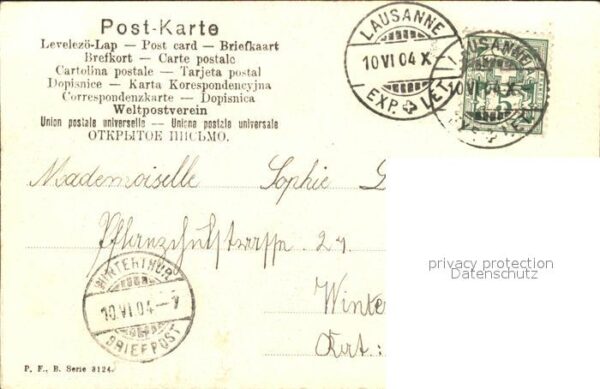 Post-Karte
Levelező-Lap — Post card — Briefkaart
Brefkort — Carte postale
Cartolina postale — Tarjeta postal
Dopisnice — Karta Korespondencyjna
Correspondenzkarte — Dopisnica
Weltpostverein
Union postale universelle — Unione postale universale
ОТКРЫТОЕ ПИСЬМО.
LAUSANNE
10 VI 04 X
EXP. LET.
LAUSANNE
10 VI 04 X
EXP. LET.
5
Mademoiselle Sophie G
Pflanzschulstrasse 27.
Winte
Ct.:
WINTERTHUR
10.VI.04-7
BRIEFPOST
privacy protection
Datenschutz
P. F., B. Serie 3124.